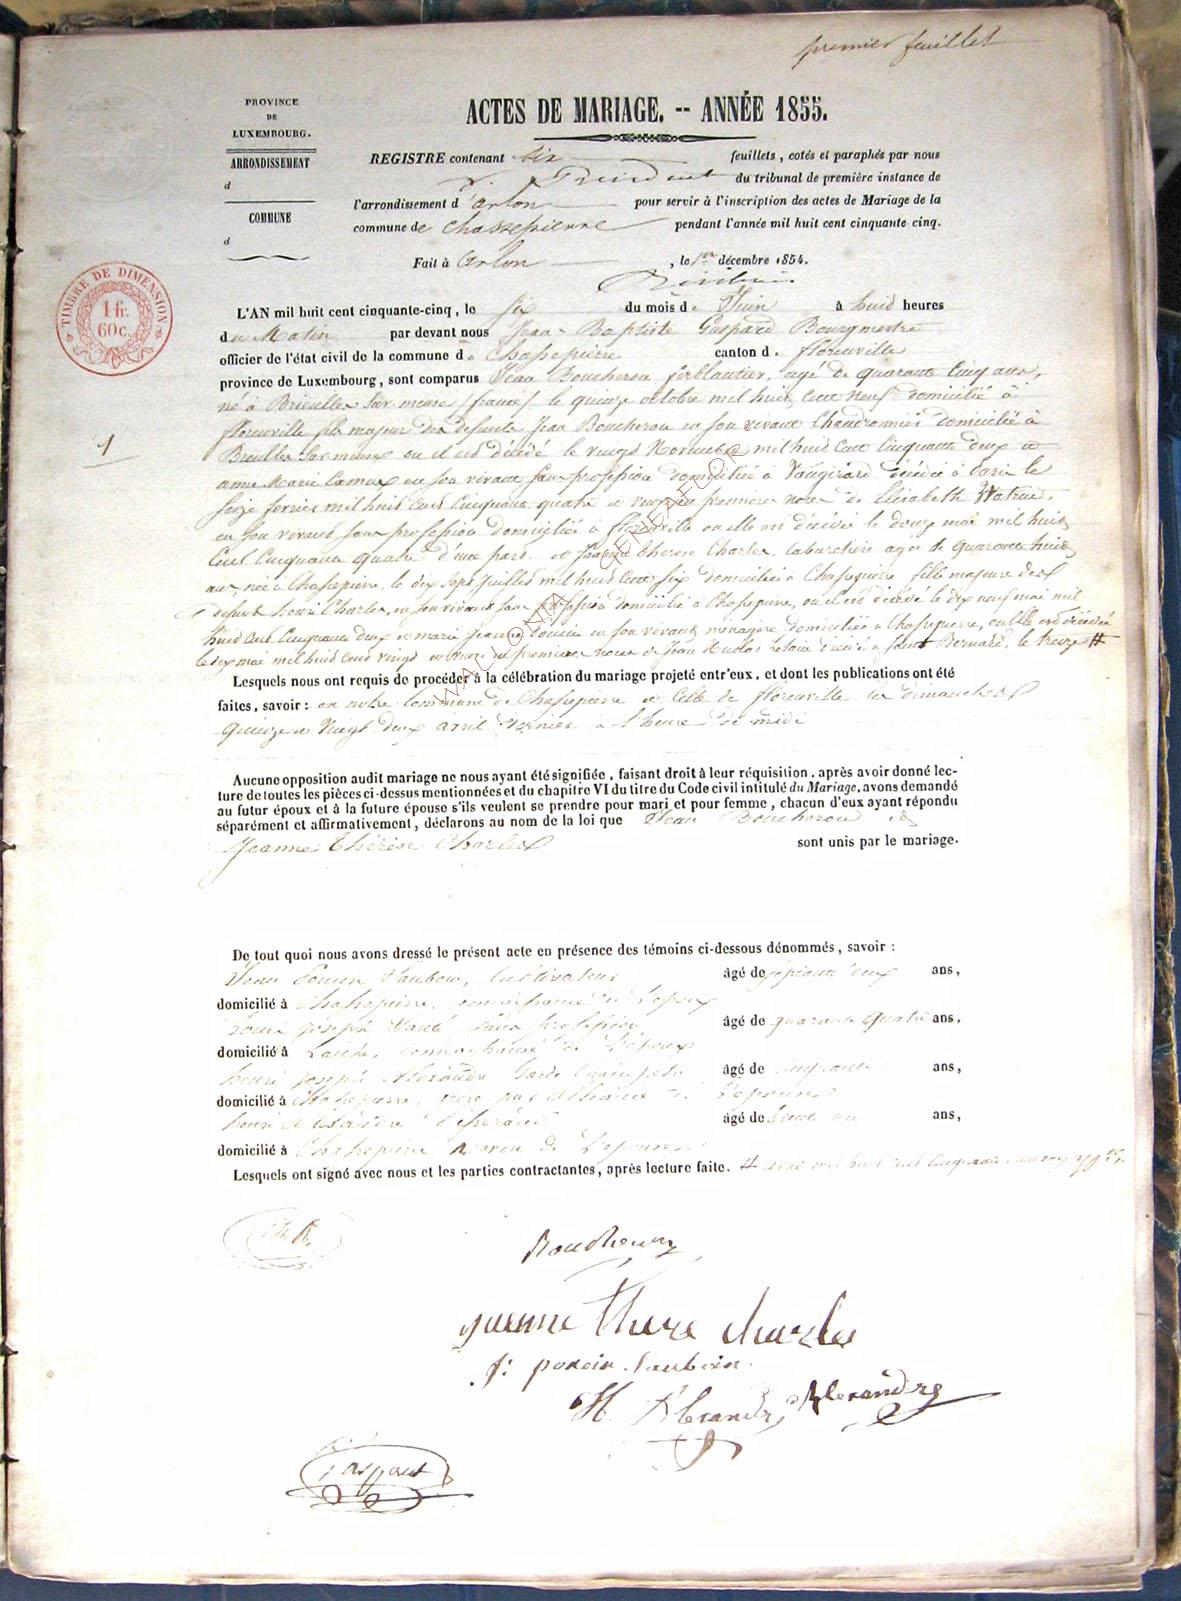 premier feuillet
PROVINCE
DE
LUXEMBOURG.
ARRONDISSEMENT
d
COMMUNE
d
ACTES DE MARIAGE. -- ANNÉE 1855.
REGISTRE contenant six feuillets, cotés et paraphés par nous
Président du tribunal de première instance de
l'arrondissement d'arlon pour servir à l'inscription des actes de Mariage de la
commune de Chassepierre pendant l'année mil huit cent cinquante-cinq.
Fait à Arlon, le 1er décembre 1854.
TIMBRE DE DIMENSION
1 fr.
60 c.
1
L'AN mil huit cent cinquante-cinq, le six du mois de Juin à huid heures
du Matin par devant nous Jean-Baptiste Gaspard Bourgmestre
officier de l'état civil de la commune de Chassepierre canton de florenville
province de Luxembourg, sont comparus Jean Boucheron ferblantier, agé de quarante cinq ans,
né à Brieulles sur meuse (france) le quinze octobre mil huid cent neuf domicilié à
florenville fils majeur des defunts Jean Boucheron en son vivant Chaudronnier domicilié à
Brieulles sur meuse ou il est décédé le vingt Novembre mil huid cent cinquante deux et
anne Marie Camus en son vivant sans profession domiciliée à Vaugirard décédée à Paris le
seize fevrier mil huid cent cinquante quatre et veuf en première noce de Elisabeth Watrin,
en son vivant sans profession domiciliée à florenville ou elle est décédée le douze mai mil huid
Cent Cinquante quatre d'une part. et Jeanne Thérèse Charles, Cabaretière agée de quarante huid
ans, née à Chassepierre, le dix sept Juillet mil huid cent six domiciliée à Chassepierre fille majeure des
defunts henri Charles, en son vivant sans profession domicilié à Chassepierre, ou il est décédé le dix neuf mai mil
huid cent cinquante deux et marie Jeanne en son vivant ménagère domiciliée à Chassepierre, ou elle est décédée
le dix mai mil huid cent vingt et veuve en première noce de Jean Nicolas décédé à Saint Bernard, le treize #
Lesquels nous ont requis de procéder à la célébration du mariage projeté entr'eux, et dont les publications ont été
faites, savoir : en notre Commune de Chassepierre et Celle de florenville les dimanches
quinze et vingt deux avril dernier à l'heure de midi
Aucune opposition audit mariage ne nous ayant été signifiée, faisant droit à leur réquisition, après avoir donné lec-
ture de toutes les pièces ci-dessus mentionnées et du chapitre VI du titre du Code civil intitulé du Mariage, avons demandé
au futur époux et à la future épouse s'ils veulent se prendre pour mari et pour femme, chacun d'eux ayant répondu
séparément et affirmativement, déclarons au nom de la loi que Jean Boucheron et
Jeanne Thérèse Charles sont unis par le mariage.
De tout quoi nous avons dressé le présent acte en présence des témoins ci-dessous dénommés, savoir :
Jean Poncin Saubain, Cultivateur âgé de septante deux ans,
domicilié à Chassepierre, connaissance de l'époux
Joseph sans profession âgé de quarante quatre ans,
domicilié à Laiche, connaissance de l'époux
henri Joseph Alexandre Garde Champetre âgé de cinquante ans,
domicilié à Chassepierre, par alliance de l'épouse
henri Alexandre âgé de trente un ans,
domicilié à Chassepierre neveu de l'épouse
Lesquels ont signé avec nous et les parties contractantes, après lecture faite. # mil huit cent cinquante
Boucheron
jaenne there charles
j: poncin saubain
H. Alexandre Alexandre
Gaspard
WALLONIA GENEAFCE